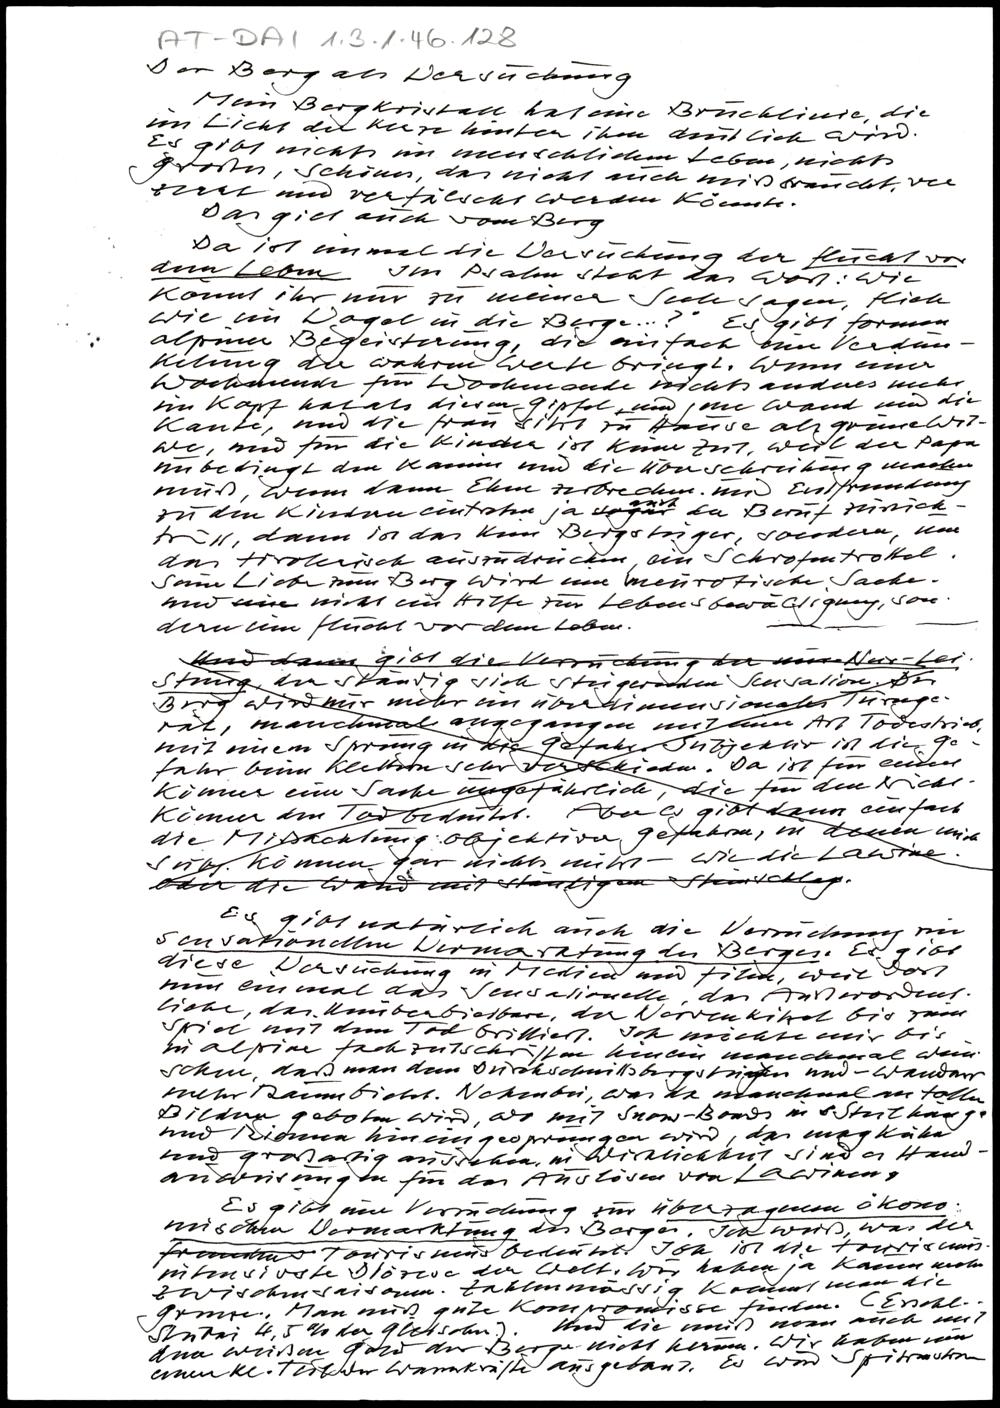 AT-DAI 1.3.1.46.128
Der Berg als Versuchung
Mein Bergkristall hat eine Bruchlinie, die
im Licht der Kerze hinter ihm deutlich wird.
Es gibt nichts im menschlichen Leben, nichts
großes, schönes, das nicht auch mißbraucht, ver
zerrt und verfälscht werden könnte.
Das gilt auch vom Berg
Da ist einmal die Versuchung der Flucht vor
dem Leben Im Psalm steht das Wort: Wie
könnt ihr nur zu meiner Seele sagen, flieh
wie ein Vogel in die Berge...?" Es gibt Formen
alpiner Begeisterung, die einfach eine Verdun-
kelung der wahren Werte bringt. Wenn einer
Wochenende für Wochenende nichts anderes mehr
im Kopf hat als diesen Gipfel und jene Wand und die
Kante, und die Frau sitzt zu Hause als grüne Wit-
we, und für die Kinder ist keine Zeit, weil der Papa
unbedingt den Kamin und die Überschreitung machen
muß, wenn dann Ehen zerbrechen und Entfremdung
zu den Kindern eintreten ja auch der Beruf zurück-
tritt, dann ist das kein Bergsteiger, sondern, um
das tirolerisch auszudrücken, ein Schrofentrottel.
Seine Liebe zum Berg wird eine neurotische Sache
und nicht ein Hilfe zur Lebensbewältigung, son
dern eine Flucht vor dem Leben.
Und dann gibt die Versuchung der Nur-Lei
stung, der ständig sich steigernden Sensation. Der
Berg wird nur mehr ein überdimensionales Turnge-
rät, manchmal angegangen mit einer Art Todestrieb,
mit einem Sprung in die Gefahr. Subjektiv ist die Ge-
fahr beim Klettern sehr verschieden. Da ist für einen
Könner eine Sache ungefährlich, die für den Nicht-
könner den Tod bedeutet. Aber es gibt dann einfach
die Mißachtung objektiver Gefahren, in denen mich
subj. Können gar nichts nützt - wie die Lawine.
oder die Wand mit ständigem Steinschlag.
Es gibt natürlich auch die Versuchung zur
sensationellen Vermarktung des Berges. Es gibt
diese Versuchung in Medien und Film, weil dort
nun einmal das Sensationelle, das Außerordent-
liche, das Unüberbietbare, der Nervenkitzel bis zum
Spiel mit dem Tod brilliert. Ich möchte mir bis
in alpine Fachzeitschriften hinein manchmal wün
schen, daß man dem Durchschnittsbergsteiger und -wanderer
mehr Raum bietet. Nebenbei, was da manchmal an tollen
Bildern geboten wird, wo mit Snow-Boards in Steilhänge
und Rinnen hineingesprungen wird, das mag kühn
und großartig aussehen, in Wirklichkeit sind es Hand-
anweisungen für das Auslösen von Lawinen,
Es gibt eine Versuchung zur überzogenen ökono
mischen Vermarktung des Berges. Ich weiß, was der
Tourismus bedeutet. Ich ist die tourismus-
intensivste Diözese der Welt. Wir haben ja kaum mehr
Zwischensaisonen. Zahlenmässig kommt man die
Grenze. Man muß gute Kompromisse finden. (Erschl.
Stubai 4,5 % der Gletscher). Und die muß man auch mit
dem weißen Gold der Berge nicht herum. Wir haben nun
einen kl. Teil der Wasserkräfte ausgebaut. Es wird Spitzenstrom